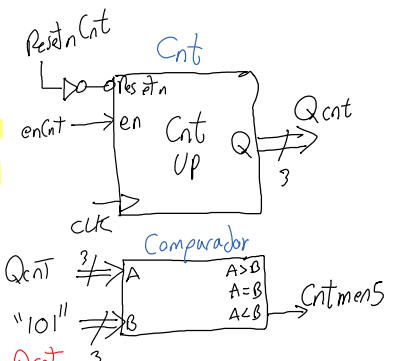 Resetn Cnt
Cnt
Resetn
enCnt
en
Cnt
UP
Q
Qcnt
3
CLK
Comparador
QcnT
3
A
A>B
A=B
A<B
Cntmen5
"101"
B
3
Qcnt